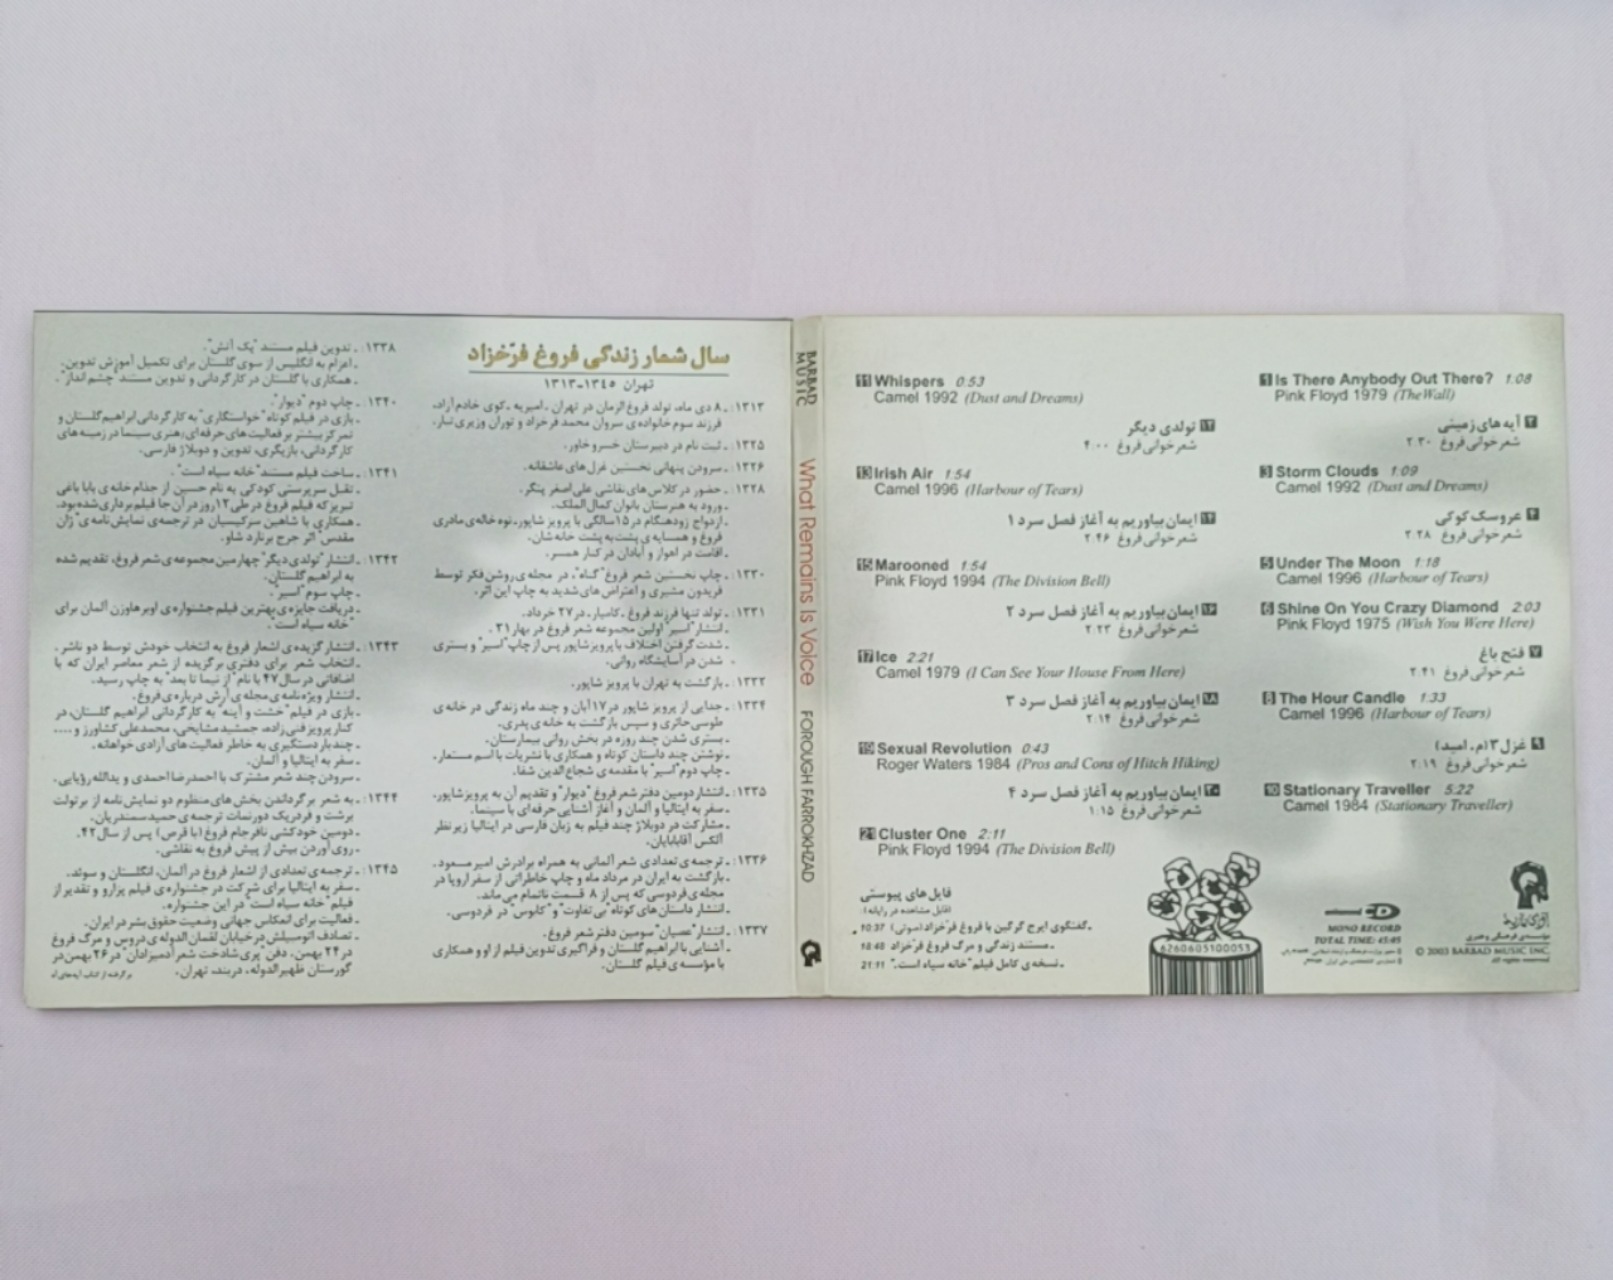 سال شمار زندگی فروغ فرّخزاد
تهران ۱۳۴۵-۱۳۱۳
۱۳۱۳: ـ ۸ دی ماه، تولد فروغ‌الزمان در تهران ـ امیریه ـ کوی خادم آزاد،
فرزند سوم خانواده‌ی سروان محمد فرخزاد و توران وزیری تبار.
۱۳۲۵: ـ ثبت نام در دبیرستان خسرو خاور.
۱۳۲۶: ـ سرودن پنهانی نخستین غزل های عاشقانه.
۱۳۲۸: ـ حضور در کلاس های نقاشی علی اصغر پتگر.
ـ ورود به هنرستان بانوان کمال‌الملک.
ـ ازدواج زودهنگام در ۱۵سالگی با پرویز شاپور ـ نوه خاله‌ی مادری
فروغ و همسایه ی پشت به پشت خانه شان.
ـ اقامت در اهواز و آبادان در کنار همسر.
۱۳۳۰: ـ چاپ نخستین شعر فروغ "گناه"، در مجله ی روشن فکر توسط
فریدون مشیری و اعتراض های شدید به چاپ این اثر.
۱۳۳۱: ـ تولد تنها فرزند فروغ ـ کامیار ـ در ۲۷ خرداد.
ـ انتشار "اسیر" اولین مجموعه شعر فروغ در بهار ۳۱.
ـ شدت گرفتن اختلاف با پرویز شاپور پس از چاپ "اسیر" و بستری
شدن در آسایشگاه روانی.
۱۳۳۲: ـ بازگشت به تهران با پرویز شاپور.
۱۳۳۴: ـ جدایی از پرویز شاپور در ۱۷ آبان و چند ماه زندگی در خانه ی
طوسی حائری و سپس بازگشت به خانه ی پدری.
ـ بستری شدن چند روزه در بخش روانی بیمارستان.
ـ نوشتن چند داستان کوتاه و همکاری با نشریات با اسم مستعار.
ـ چاپ دوم "اسیر" با مقدمه ی شجاع‌الدین شفا.
۱۳۳۵: ـ انتشار دومین دفتر شعر فروغ "دیوار" و تقدیم آن به پرویز شاپور.
ـ سفر به ایتالیا و آلمان و آغاز آشنایی حرفه ای با سینما.
ـ مشارکت در دوبلاژ چند فیلم به زبان فارسی در ایتالیا زیر نظر
آلکس آقابابایان.
۱۳۳۶: ـ ترجمه ی تعدادی شعر آلمانی به همراه برادرش امیر مسعود.
ـ بازگشت به ایران در مرداد ماه و چاپ خاطراتی از سفر اروپا در
مجله ی فردوسی که پس از ۸ قسمت ناتمام می ماند.
ـ انتشار داستان های کوتاه "بی تفاوت" و "کابوس" در فردوسی.
۱۳۳۷: ـ انتشار "عصیان" سومین دفتر شعر فروغ.
ـ آشنایی با ابراهیم گلستان و فراگیری تدوین فیلم از او و همکاری
با مؤسسه ی فیلم گلستان.
۱۳۳۸: ـ تدوین فیلم مستند "یک آتش".
ـ اعزام به انگلیس از سوی گلستان برای تکمیل آموزش تدوین.
ـ همکاری با گلستان در کارگردانی و تدوین مستند "چشم انداز".
۱۳۴۰: ـ چاپ دوم "دیوار".
ـ بازی در فیلم کوتاه "خواستگاری" به کارگردانی ابراهیم گلستان و
تمرکز بیشتر بر فعالیت های حرفه ای/هنری سینما در زمینه های
کارگردانی، بازیگری، تدوین و دوبلاژ فارسی.
۱۳۴۱: ـ ساخت فیلم مستند "خانه سیاه است".
ـ تقبل سرپرستی کودکی به نام حسین از جذام خانه ی بابا باغی
تبریز که فیلم فروغ در طی ۱۲ روز در آن جا فیلم برداری شده بود.
ـ همکاری با شاهین سرکیسیان در ترجمه ی نمایش نامه ی "ژان
مقدس" اثر جرج برنارد شاو.
۱۳۴۲: ـ انتشار "تولدی دیگر" چهارمین مجموعه ی شعر فروغ، تقدیم شده
به ابراهیم گلستان.
ـ چاپ سوم "اسیر".
ـ دریافت جایزه ی بهترین فیلم جشنواره ی اوبرهاوزن آلمان برای
"خانه سیاه است".
۱۳۴۳: ـ انتشار گزیده ی اشعار فروغ به انتخاب خودش توسط دو ناشر.
ـ انتخاب شعر برای دفتری برگزیده از شعر معاصر ایران که با
اضافاتی در سال ۴۷ با نام "از نیما تا بعد" به چاپ رسید.
ـ انتشار ویژه نامه ی مجله ی آرش درباره ی فروغ.
ـ بازی در فیلم "خشت و آینه" به کارگردانی ابراهیم گلستان، در
کنار پرویز فنی زاده، جمشید مشایخی، محمدعلی کشاورز و ....
ـ چند بار دستگیری به خاطر فعالیت های آزادی خواهانه.
ـ سفر به ایتالیا و آلمان.
ـ سرودن چند شعر مشترک با احمدرضا احمدی و یدالله رؤیایی.
۱۳۴۴: ـ به شعر برگرداندن بخش های منظوم دو نمایش نامه از برتولت
برشت و فردریک دورنمات ترجمه ی حمید سمندریان.
ـ دومین خودکشی نافرجام فروغ (با قرص) پس از سال ۴۲.
ـ روی آوردن بیش از پیش فروغ به نقاشی.
۱۳۴۵: ـ ترجمه ی تعدادی از اشعار فروغ در آلمان، انگلستان و سوئد.
ـ سفر به ایتالیا برای شرکت در جشنواره ی فیلم پزارو و تقدیر از
فیلم "خانه سیاه است" در این جشنواره.
ـ فعالیت برای انعکاس جهانی وضعیت حقوق بشر در ایران.
ـ تصادف اتومبیلش در خیابان لقمان‌الدوله ی دروس و مرگ فروغ
در ۲۴ بهمن، دفن "پری شادخت شعر آدمیزادان" در ۲۶ بهمن در
گورستان ظهیرالدوله، دربند، تهران.
برگرفته از کتاب آیه های آه
BARBAD
MUSIC
What Remains Is Voice
FOROUGH FARROKHZAD
1 Is There Anybody Out There? 1:08
Pink Floyd 1979 (The Wall)
۲ آیه های زمینی
شعر خوانی فروغ ۲:۳۰
3 Storm Clouds 1:09
Camel 1992 (Dust and Dreams)
۴ عروسک کوکی
شعر خوانی فروغ ۲:۲۸
5 Under The Moon 1:18
Camel 1996 (Harbour of Tears)
6 Shine On You Crazy Diamond 2:03
Pink Floyd 1975 (Wish You Were Here)
۷ فتح باغ
شعر خوانی فروغ ۲:۴۱
8 The Hour Candle 1:33
Camel 1996 (Harbour of Tears)
۹ غزل ۳ (م. امید)
شعر خوانی فروغ ۲:۱۹
10 Stationary Traveller 5:22
Camel 1984 (Stationary Traveller)
11 Whispers 0:53
Camel 1992 (Dust and Dreams)
۱۲ تولدی دیگر
شعر خوانی فروغ ۴:۰۰
13 Irish Air 1:54
Camel 1996 (Harbour of Tears)
۱۴ ایمان بیاوریم به آغاز فصل سرد ۱
شعر خوانی فروغ ۲:۴۶
15 Marooned 1:54
Pink Floyd 1994 (The Division Bell)
۱۶ ایمان بیاوریم به آغاز فصل سرد ۲
شعر خوانی فروغ ۲:۲۳
17 Ice 2:21
Camel 1979 (I Can See Your House From Here)
۱۸ ایمان بیاوریم به آغاز فصل سرد ۳
شعر خوانی فروغ ۲:۱۴
19 Sexual Revolution 0:43
Roger Waters 1984 (Pros and Cons of Hitch Hiking)
۲۰ ایمان بیاوریم به آغاز فصل سرد ۴
شعر خوانی فروغ ۱:۱۵
21 Cluster One 2:11
Pink Floyd 1994 (The Division Bell)
فایل های پیوستی
(قابل مشاهده در رایانه):
ـ گفتگوی ایرج گرگین با فروغ فرّخزاد (صوتی) 10:37
ـ مستند زندگی و مرگ فروغ فرّخزاد 18:48
ـ نسخه ی کامل فیلم "خانه سیاه است" 21:11
6260605100053
enhanced CD
MONO RECORD
TOTAL TIME: 45:05
مؤسسه ی فرهنگی و هنری
© 2003 BARBAD MUSIC INC.
All rights reserved